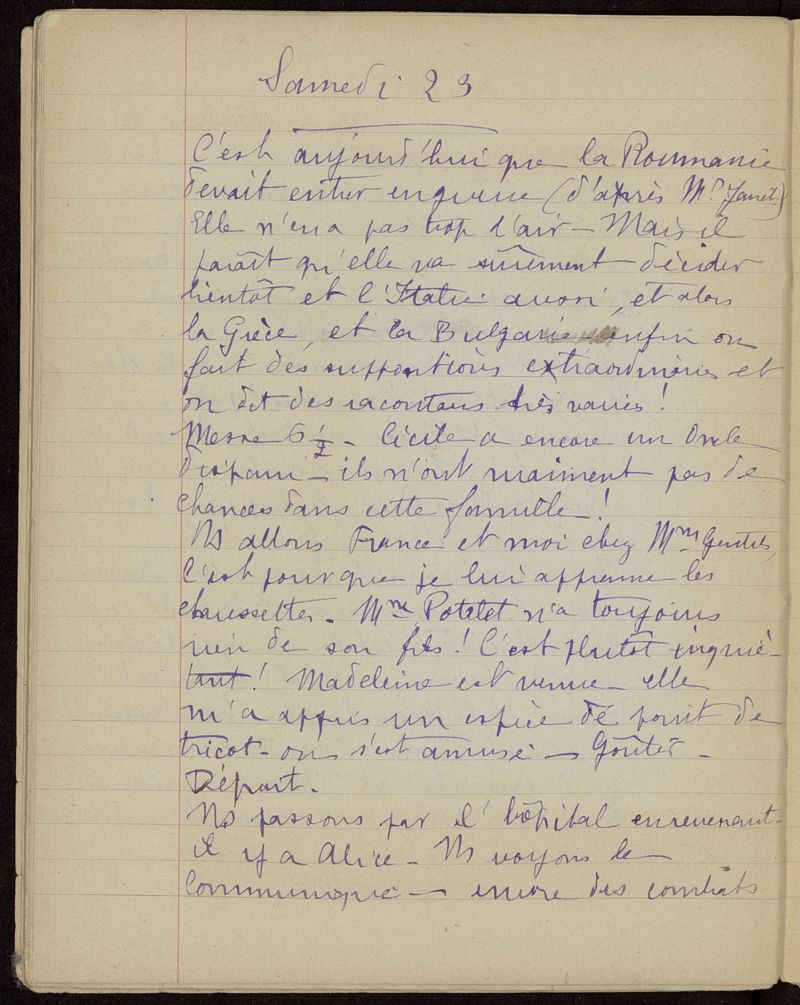 Samedi 23
C'est aujourd'hui que la Roumanie
devait entrer en guerre (d'après Mr Janet)
Elle n'en a pas trop l'air – Mais il
paraît qu'elle va sûrement décider
bientôt et l'Italie aussi, et alors
la Grèce, et la Bulgarie enfin on
fait des suppositions extraordinaires et
on dit des racontars très variés !
Messe 6 1/2 – Cécile a encore un oncle
disparu – ils n'ont vraiment pas de
chances dans cette famille !
Ns allons France et moi chez Mme
C'est pour que je lui apprenne les
chaussettes – Mme Potelet n'a toujours
rien de son fils ! C'est plutôt inquié-
tant ! Madeleine est venue – elle
m'a appris un espèce de point de
tricot – on s'est amusé – Goûter –
Départ.
Ns passons par l'hôpital en revenant –
il y a Alice – Ns voyons le
Communiqué – encore des combats